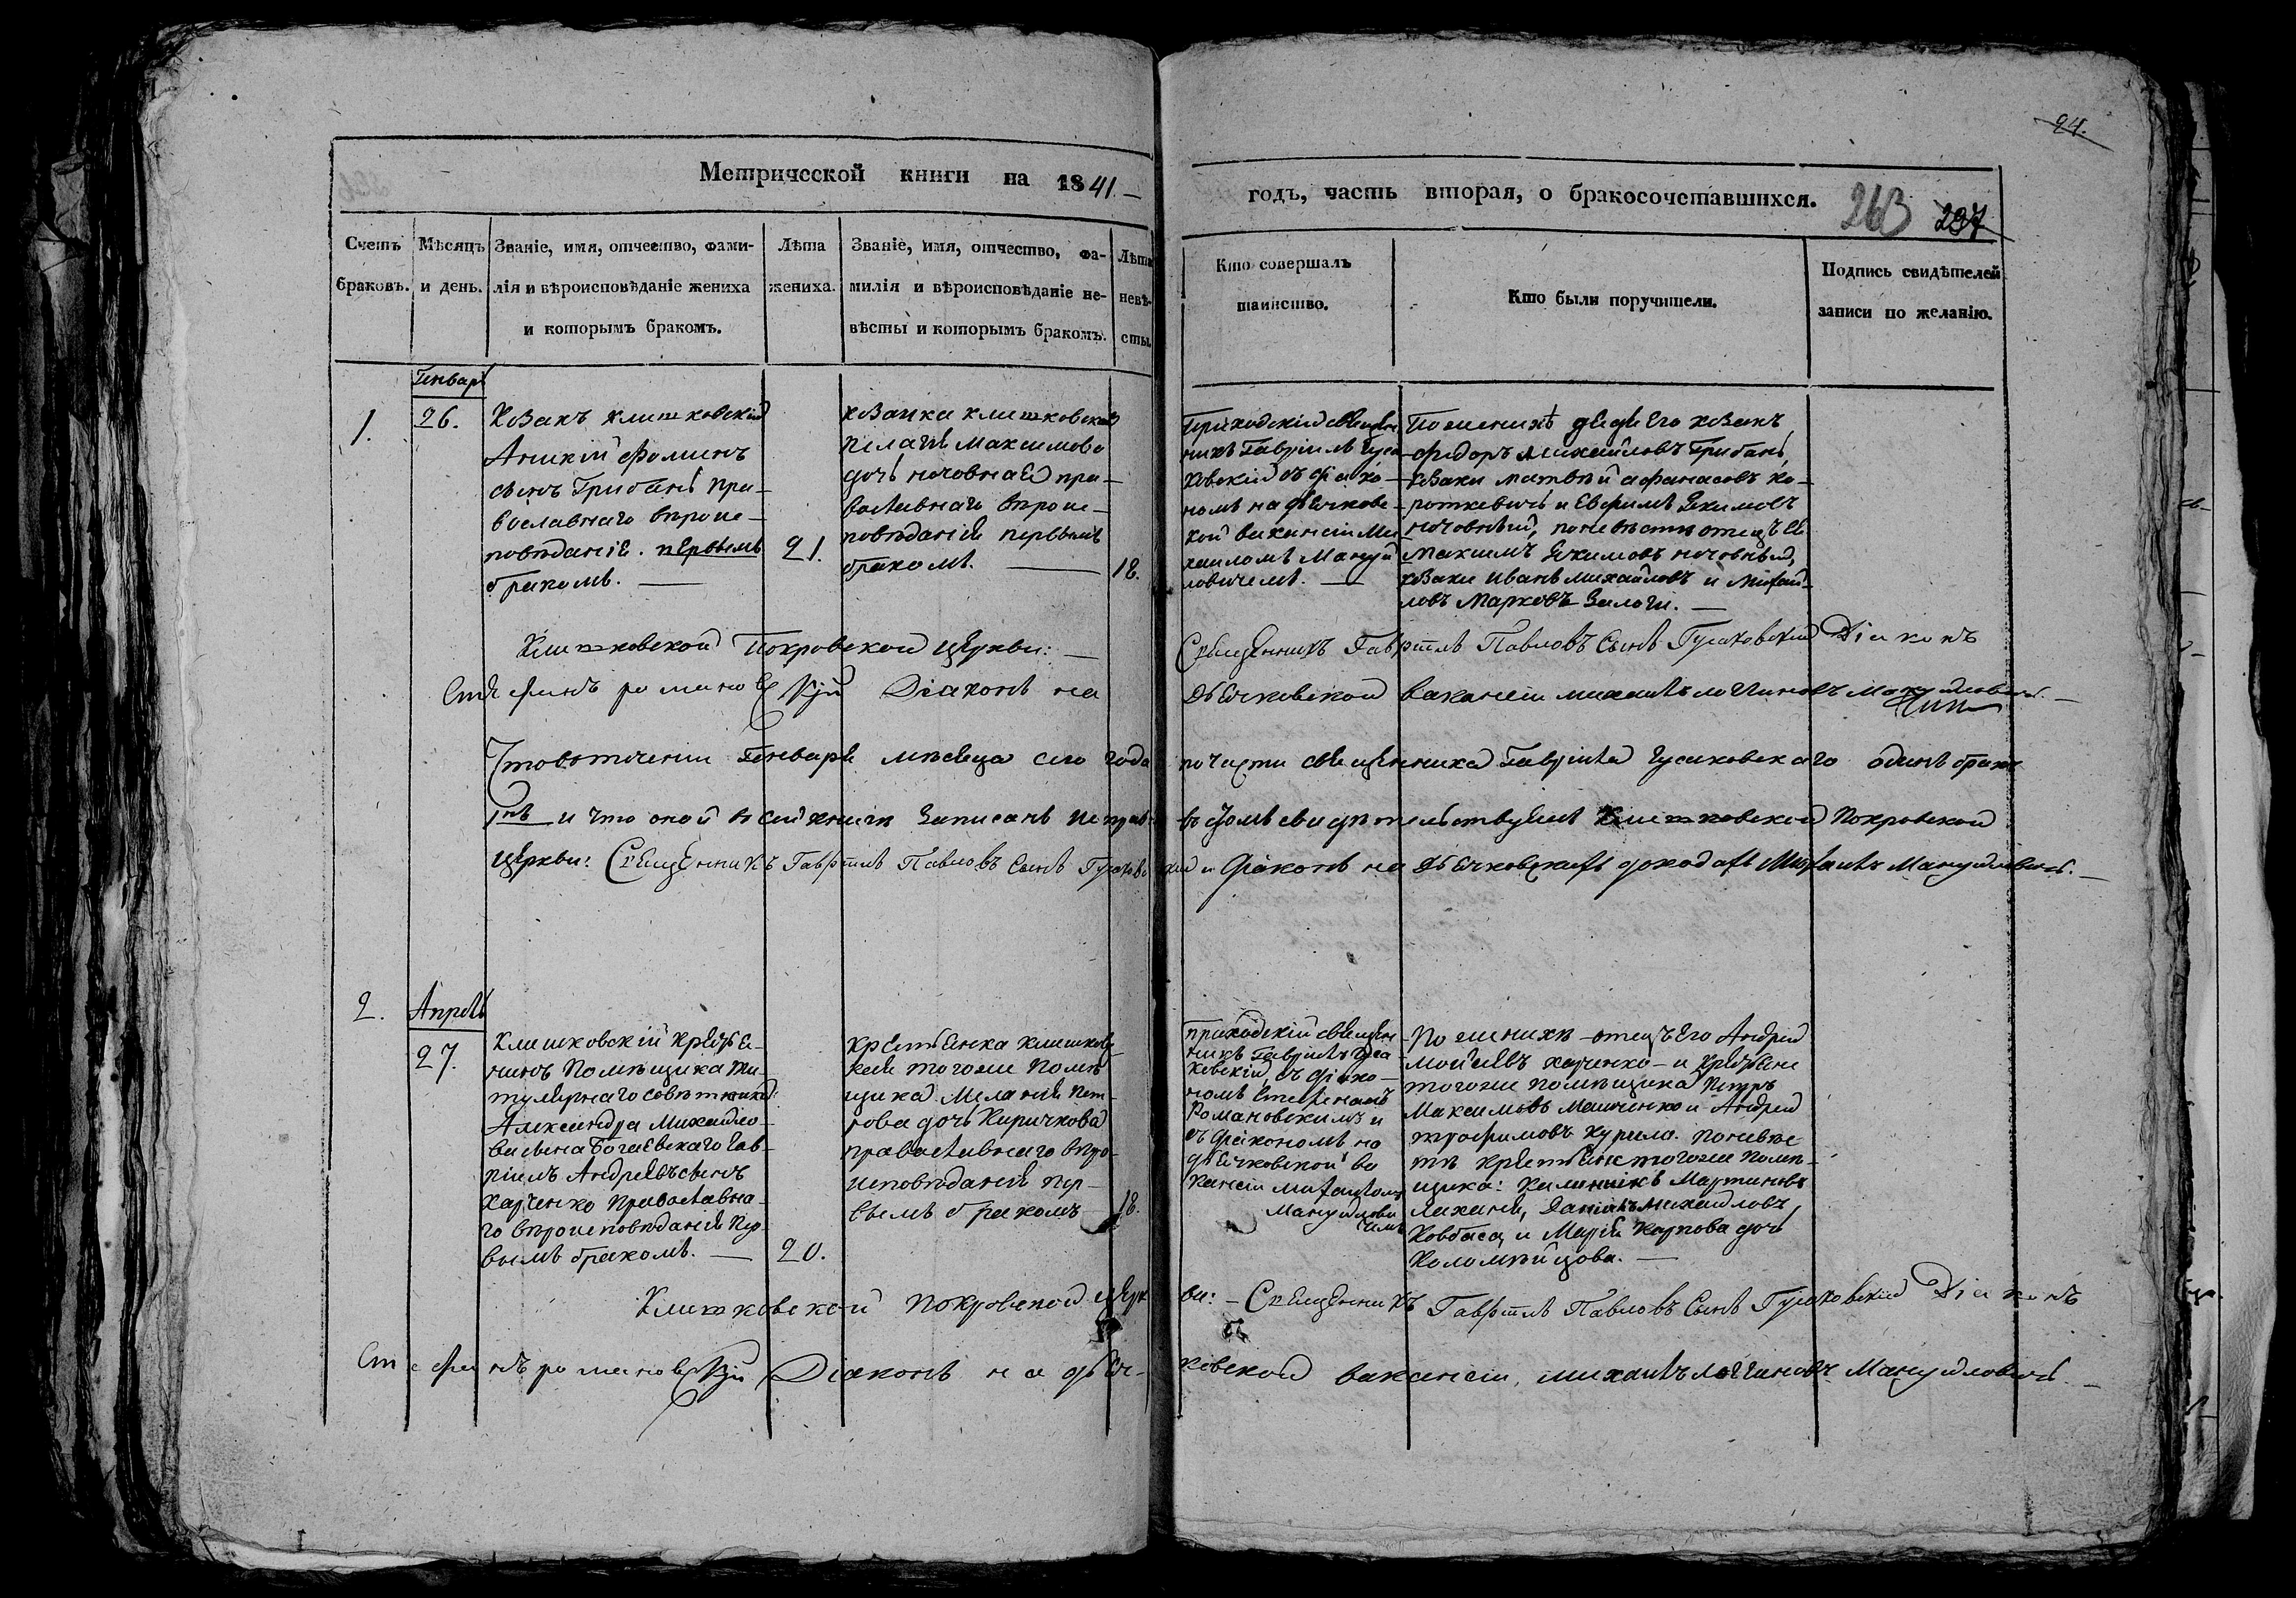 94.
Метрической книги на 1841.—
годъ, часть вторая, о бракосочетавшихся.
263 237
Счетъ браковъ.
Мѣсяцъ и день.
Званіе, имя, отчество, фами-
лія и вѣроисповѣданіе жениха
и которымъ бракомъ.
Лѣта
жениха.
Званіе, имя, отчество, фа-
милія и вѣроисповѣданіе не-
вѣсты и которымъ бракомъ.
Лѣта
невѣ-
сты.
Кто совершалъ
таинство.
Кто были поручители.
Подпись свидѣтелей
записи по желанію.
Генварь
1.
26.
Козакъ клишковскій
Аникій Фоминъ
сынъ Грибанъ пра-
вославнаго вѣроис-
повѣданія. первымъ
бракомъ. —
21.
козачка клишковская
Пелагія Максимова
дочь ночовная пра-
вославнаго вѣроис-
повѣданія первымъ
бракомъ. —
18.
Приходскій священ-
никъ Гавріилъ Гуса-
ковскій съ діако-
номъ на дьячковс-
кой вакансіи Ми-
хаиломъ Мануй
ловичемъ. —
По женихѣ дядя его козакъ
Федоръ Михайловъ Грибанъ,
козаки матвѣй афанасовъ ко-
роткевичь и Евфимъ Екимовъ
ночовный, по невѣстѣ отецъ ея
Максимъ Екимовъ ночовный,
козаки Иванъ Михайловъ и Михай-
ловъ Марковъ Залоги. —
Клишковской Покровской церкви: —
Священникъ Гавріилъ Павловъ Сынъ Гусаковский Діаконъ
Стефанъ романовскій Діаконъ на
дьячковской вакансіи михаилъ логгиновъ мануйловичь. —
Что втеченіи Генваря мѣсяца сего года
по части священника Гавріила Гусаковскаго одинъ бракъ
1нъ и что оной в сей книги записанъ исправ-
въ томъ свидѣтельствуемъ Клишковской Покровской
церкви: Священникъ Гавріилъ Павловъ Сынъ Гусаковс
кий и діаконъ на дьячковскихъ доходахъ Михаилъ Мануйловичь. —
2.
Апрель
27.
Клишковскій крестья-
нинъ Помѣщика ти-
тулярнаго совѣтника
Александра Михайло-
ва сына Богаевскаго Гав-
ріилъ Андреевъ сынъ
Харченко Православна-
го вѣроисповѣданія пер-
вымъ бракомъ. —
20.
крестьянка клишковс-
кая тогоже Помѣ
щика Меланія Пет-
рова дочь Киричкова
православнаго вѣро-
исповѣданія пер-
вымъ бракомъ
18.
приходскій священ
никъ Гавріилъ Гуса
ковскій съ діако-
номъ Стефаномъ
Романовскимъ и
съ діакономъ на
дьячковской ва
кансіи михаиломъ
Мануйлови
чемъ
По женихѣ отецъ его Андрей
мойсеевъ харченко и крестьяне
тогоже помѣщика Петръ
Максимовъ Машченко и Андрей
трофимовъ Курило. по невѣс-
тѣ крестьяне тогоже помѣ-
щика: Калиникъ Мартиновъ
Даніилъ михайловъ
Ковбаса, и Марія Карпова дочь
Коломѣйцова. —
Клишковской Покровской церк
ви: — Священникъ Гавріилъ Павловъ Сынъ Гусаковский Діаконъ
Стефанъ романовскій Діаконъ на дьяч-
ковской вакансіи, михаилъ логгиновъ Мануйловичь. —